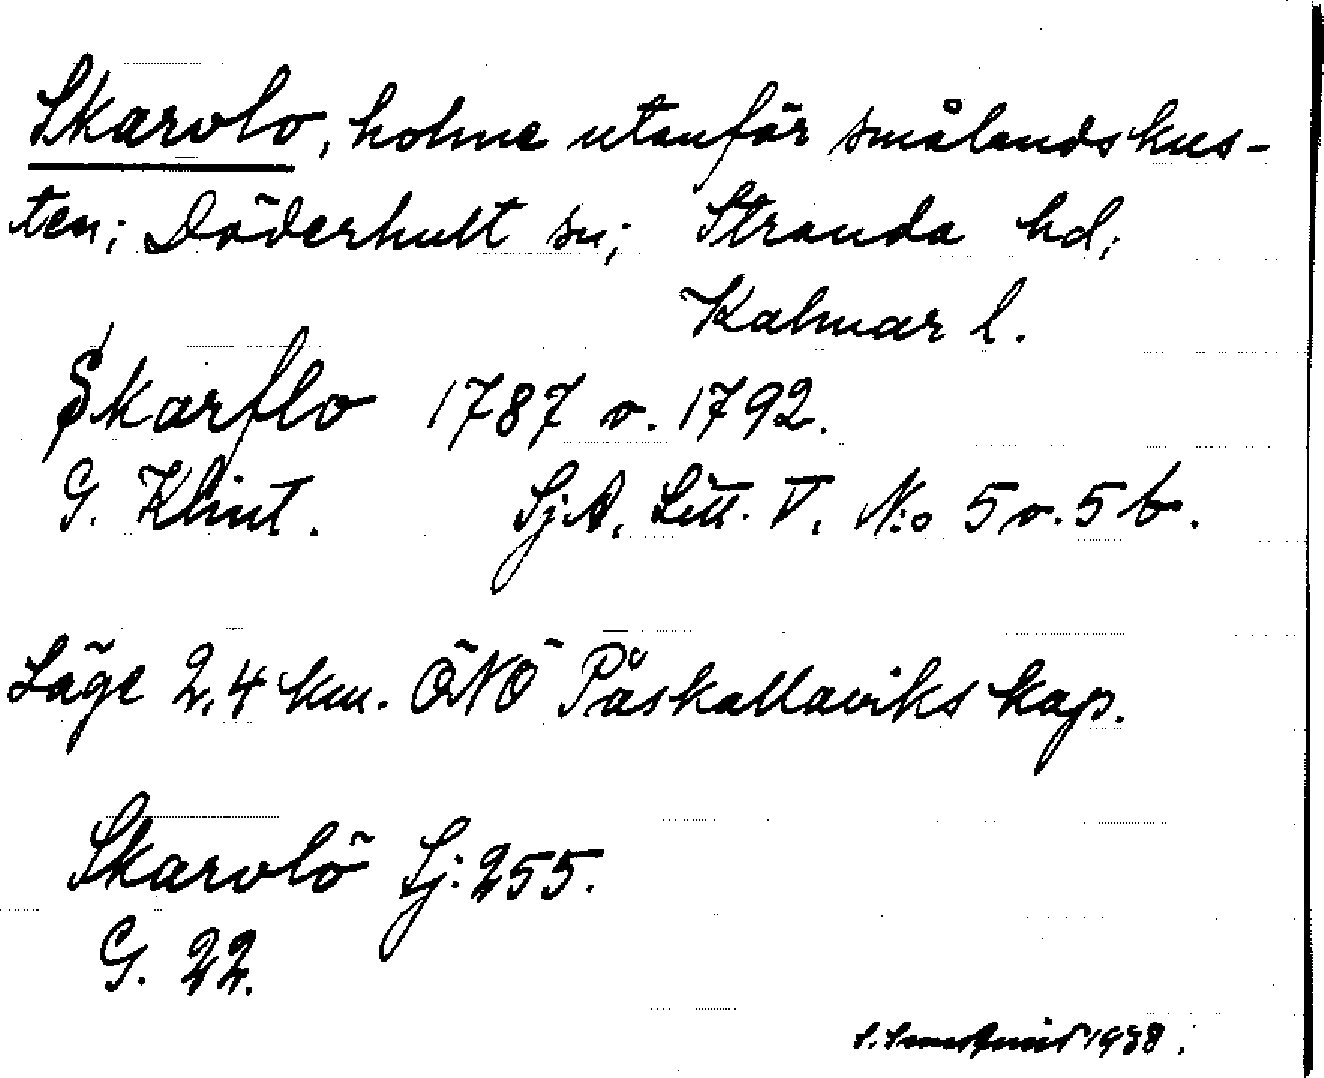 Skarvlo, holme utanför smålandskus-
ten; Döderhult sn; Stranda hd;
Kalmar l.
Skarflo 1787 o. 1792.
G. Klint. SjA. Litt. V. N:o 5 o. 5 b.
Läge 2,4 km. ÖNÖ Påskallaviks kap.
Skarvlö Sj: 255.
G. 22.
1938.